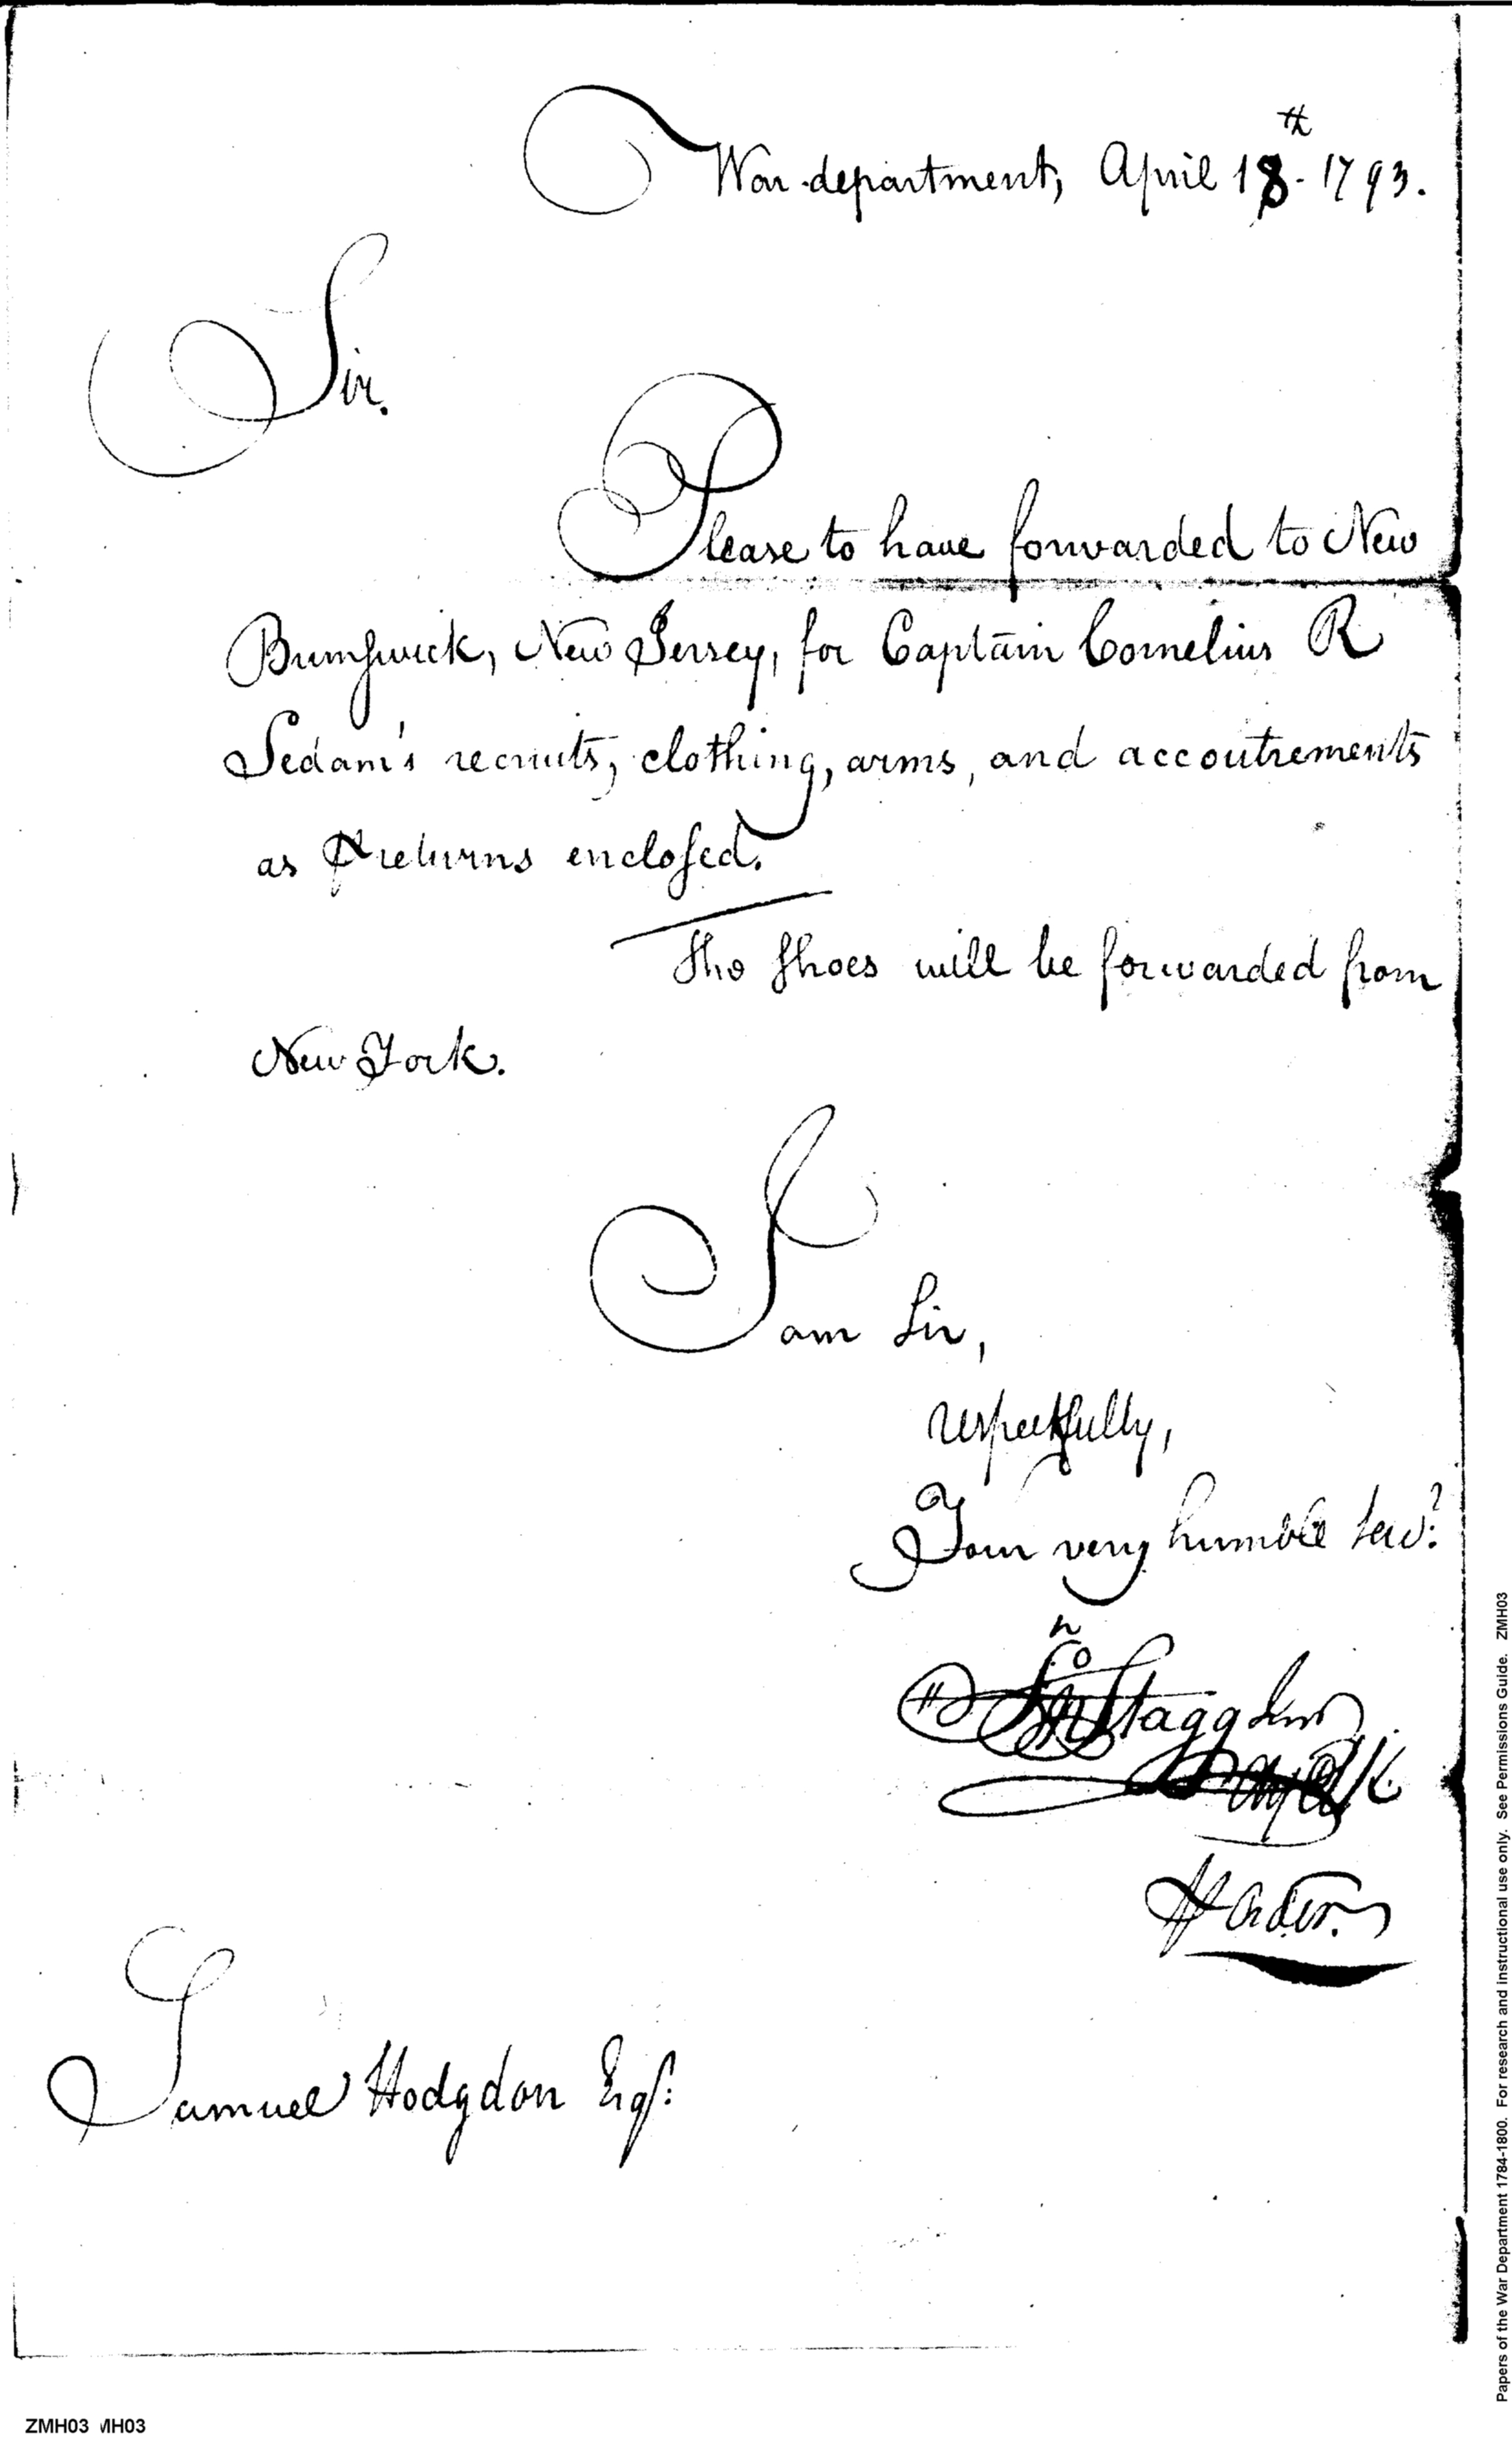 War department, April 18th 1793.
Sir.
Please to have forwarded to New
Brunswick, New Jersey, for Captain Cornelius R
Sedam's recruits, clothing, arms, and accoutrements
as ⅌ returns enclosed.
The shoes will be forwarded from
New York.
I am Sir,
respectfully,
Your very humble servt.
Jno Stagg Junr
Clk
Samuel Hodgdon Esqr.
Papers of the War Department 1784-1800. For research and instructional use only. See Permissions Guide. ZMH03
ZMH03 MH03